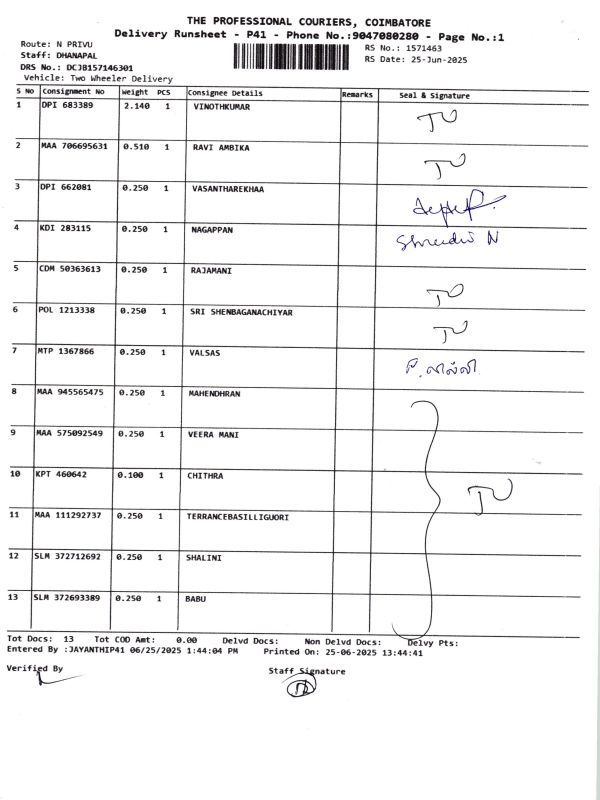 THE PROFESSIONAL COURIERS, COIMBATORE
Delivery Runsheet - P41 - Phone No.:9047080280 - Page No.:1
Route: N PRIVU
RS No.: 1571463
Staff: DHANAPAL
RS Date: 25-Jun-2025
DRS No.: DCJB157146301
Vehicle: Two Wheeler Delivery
S No Consignment No Weight PCS Consignee Details Remarks Seal & Signature
1 DPI 683389 2.140 1 VINOTHKUMAR
2 MAA 706695631 0.510 1 RAVI AMBIKA
3 DPI 662081 0.250 1 VASANTHAREKHAA
4 KDI 283115 0.250 1 NAGAPPAN
5 CDM 50363613 0.250 1 RAJAMANI
6 POL 1213338 0.250 1 SRI SHENBAGANACHIYAR
7 MTP 1367866 0.250 1 VALSAS
8 MAA 945565475 0.250 1 MAHENDHRAN
9 MAA 575092549 0.250 1 VEERA MANI
10 KPT 460642 0.100 1 CHITHRA
11 MAA 111292737 0.250 1 TERRANCEBASILLIGUORI
12 SLM 372712692 0.250 1 SHALINI
13 SLM 372693389 0.250 1 BABU
Tot Docs: 13 Tot COD Amt: 0.00 Delvd Docs: Non Delvd Docs: Delvy Pts:
Entered By :JAYANTHIP41 06/25/2025 1:44:04 PM Printed On: 25-06-2025 13:44:41
Verified By
Staff Signature